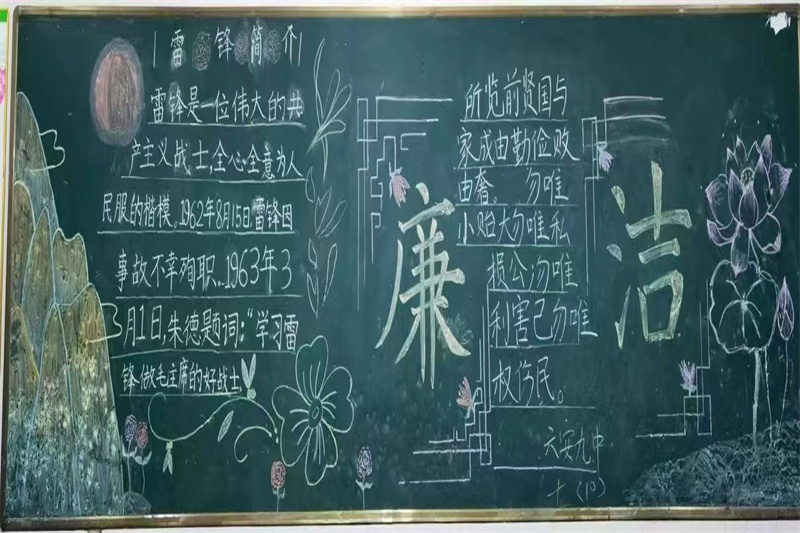 雷锋简介
雷锋是一位伟大的共
产主义战士,全心全意为人
民服的楷模。1962年8月15日,雷锋因
事故不幸殉职..1963年3
月1日,朱德题词:"学习雷
锋做毛主席的好战士
廉
所览前贤国与
家成由勤俭败
由奢。勿唯
小贻大勿唯私
损公勿唯
利害己勿唯
权伤民。
六安九中
洁